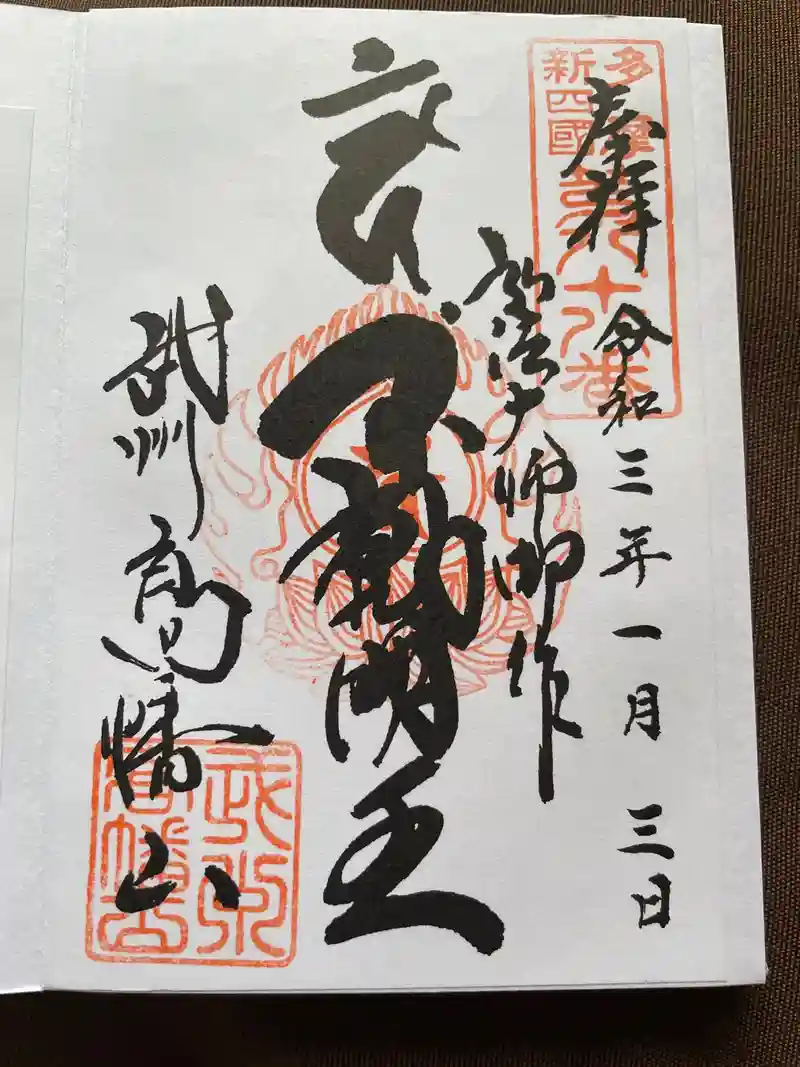 多摩
新四國
第八十八番
奉拝 令和三年一月三日
弘法大師御作
不動明王
武州 高幡山
武州
高幡山